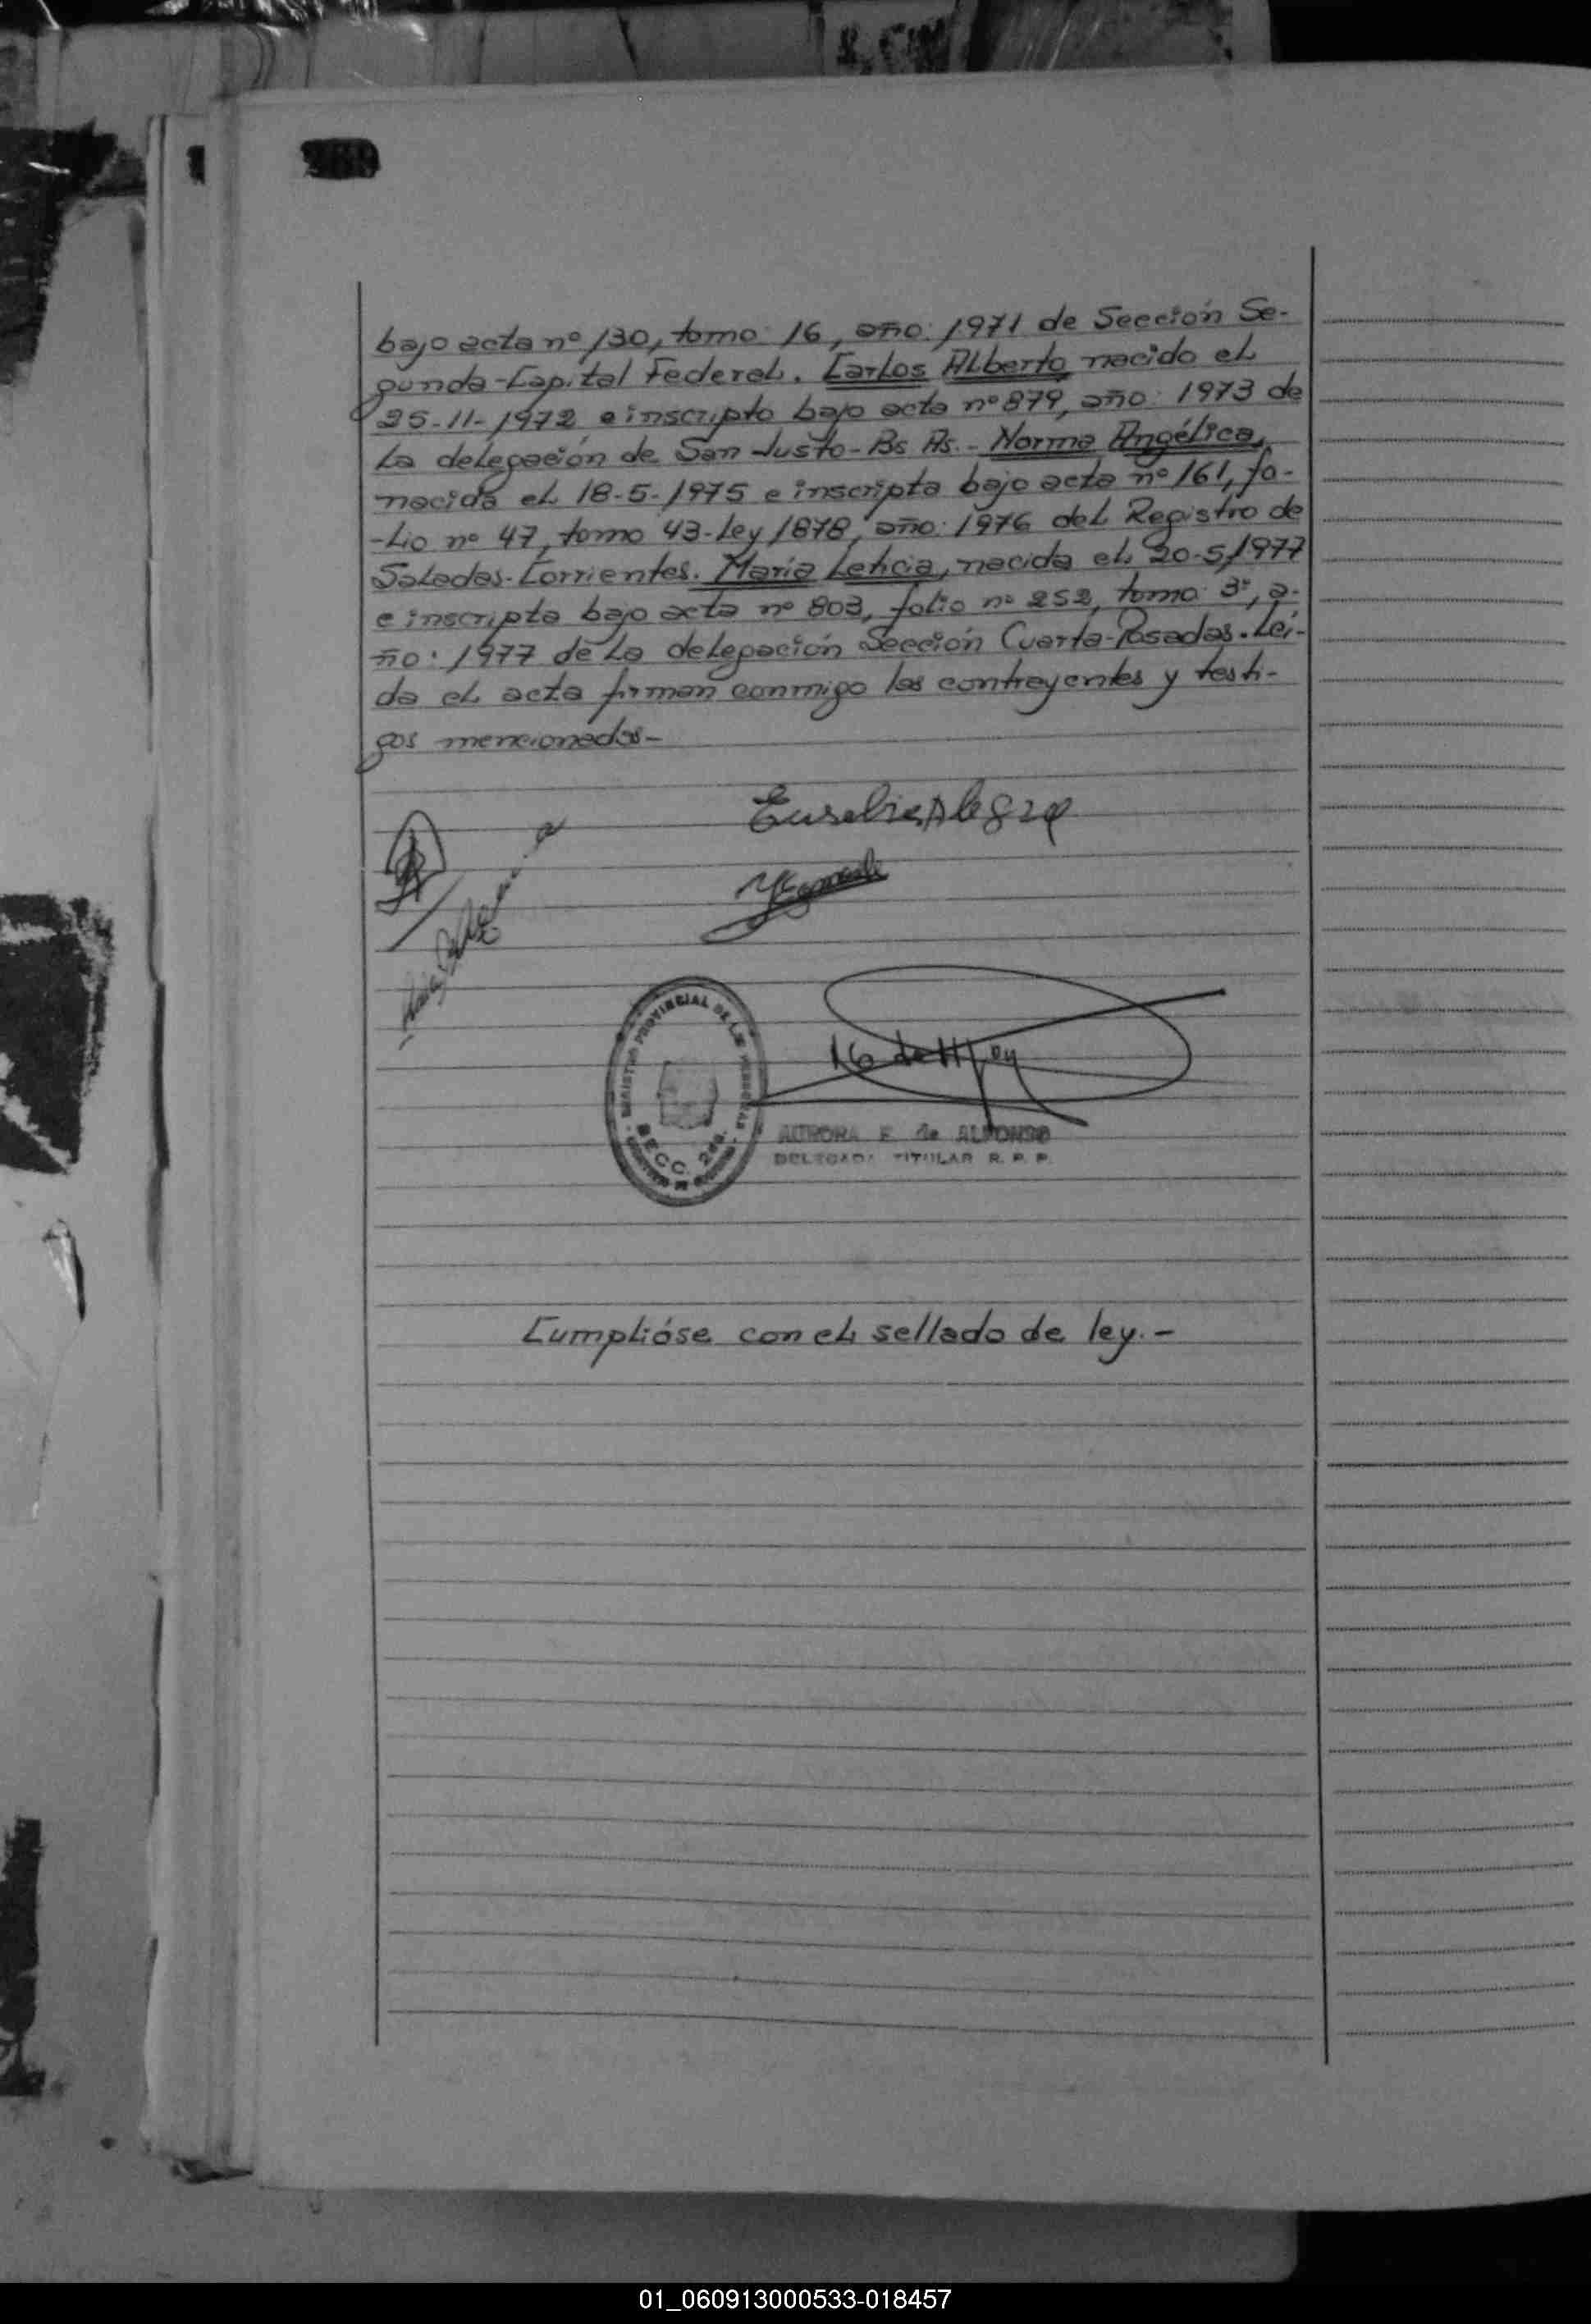 bajo acta nº 130, tomo: 16, año: 1971 de Sección Se-
gunda-Capital Federal. Carlos Alberto, nacido el
25-11-1972 e inscripto bajo acta nº 879, año: 1973 de
la delegación de San Justo-Bs As.- Norma Angélica,
nacida el 18-5-1975 e inscripta bajo acta nº 161, fo-
-lio nº 47, tomo 43-Ley 1878, año: 1976 del Registro de
Saladas-Corrientes. María Leticia, nacida el 20-5-1977
e inscripta bajo acta nº 803, folio nº 252, tomo: 3º, a-
ño: 1977 de la delegación Sección Cuarta-Posadas. Leí-
da el acta firman conmigo los contrayentes y testi-
gos mencionados-
Eusebio Alegre
REGISTRO PROVINCIAL DE LAS PERSONAS
SECC. 2da.
AURORA F. de ALFONSO
DELEGADA TITULAR R. P. P.
Cumplióse con el sellado de ley.-
01_060913000533-018457